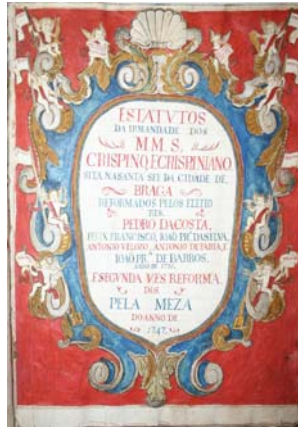 ESTATVTOS
DA IRMANDADE DOS
M M. S.
CRISPINO, E CRISPINIANO
SITA NA SANTA SEE DA CIDADE DE
BRAGA
REFORMADOS PELOS ELEITO
RES.
PEDRO DACOSTA,
FRANCISCO, IOAÕ DASILVA,
ANTONIO VELOZO, ANTONIO DE FARIA, E
IOAÕ PR.ᴬ DE BARROS,
ANNO DE
E SEGVNDA VES REFORMA
DOS
PELA MEZA
DO ANNO DE
1747